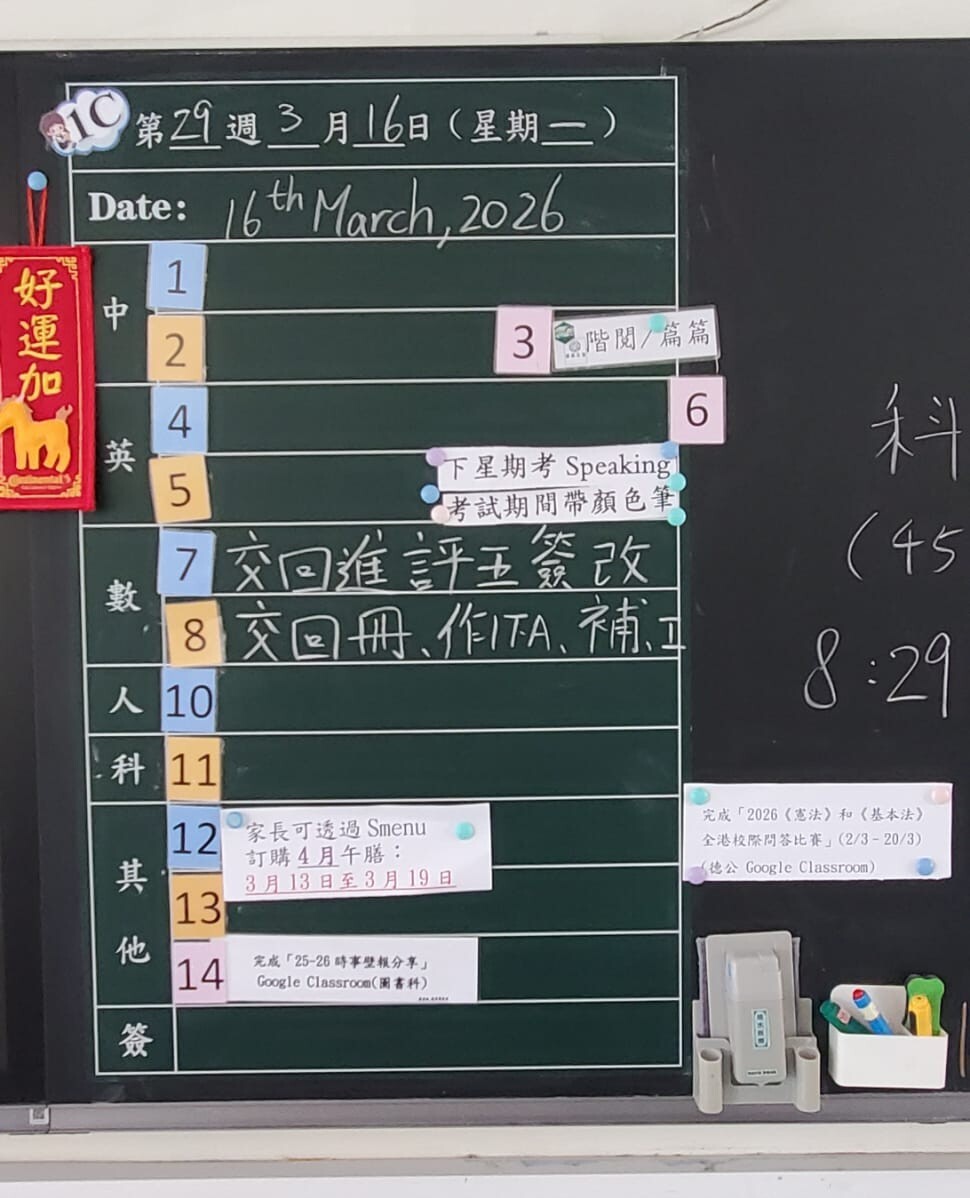 1C
第29週3月16日(星期一)
Date: 16th March, 2026
好運加
中
1
2
3 階閱/篇篇
英
4
6
5
下星期考 Speaking
考試期間帶顏色筆
數
7 交回進評五簽改
8 交回冊、作ITA、補、工
人 10
科 11
其他
12
家長可透過 Smenu
訂購 4月午膳:
3月13日至3月19日
13
14
完成「25-26 時事壁報分享」
Google Classroom(圖書科)
簽
科
(45
8:29
完成「2026《憲法》和《基本法》
全港校際問答比賽」(2/3-20/3)
(德公 Google Classroom)